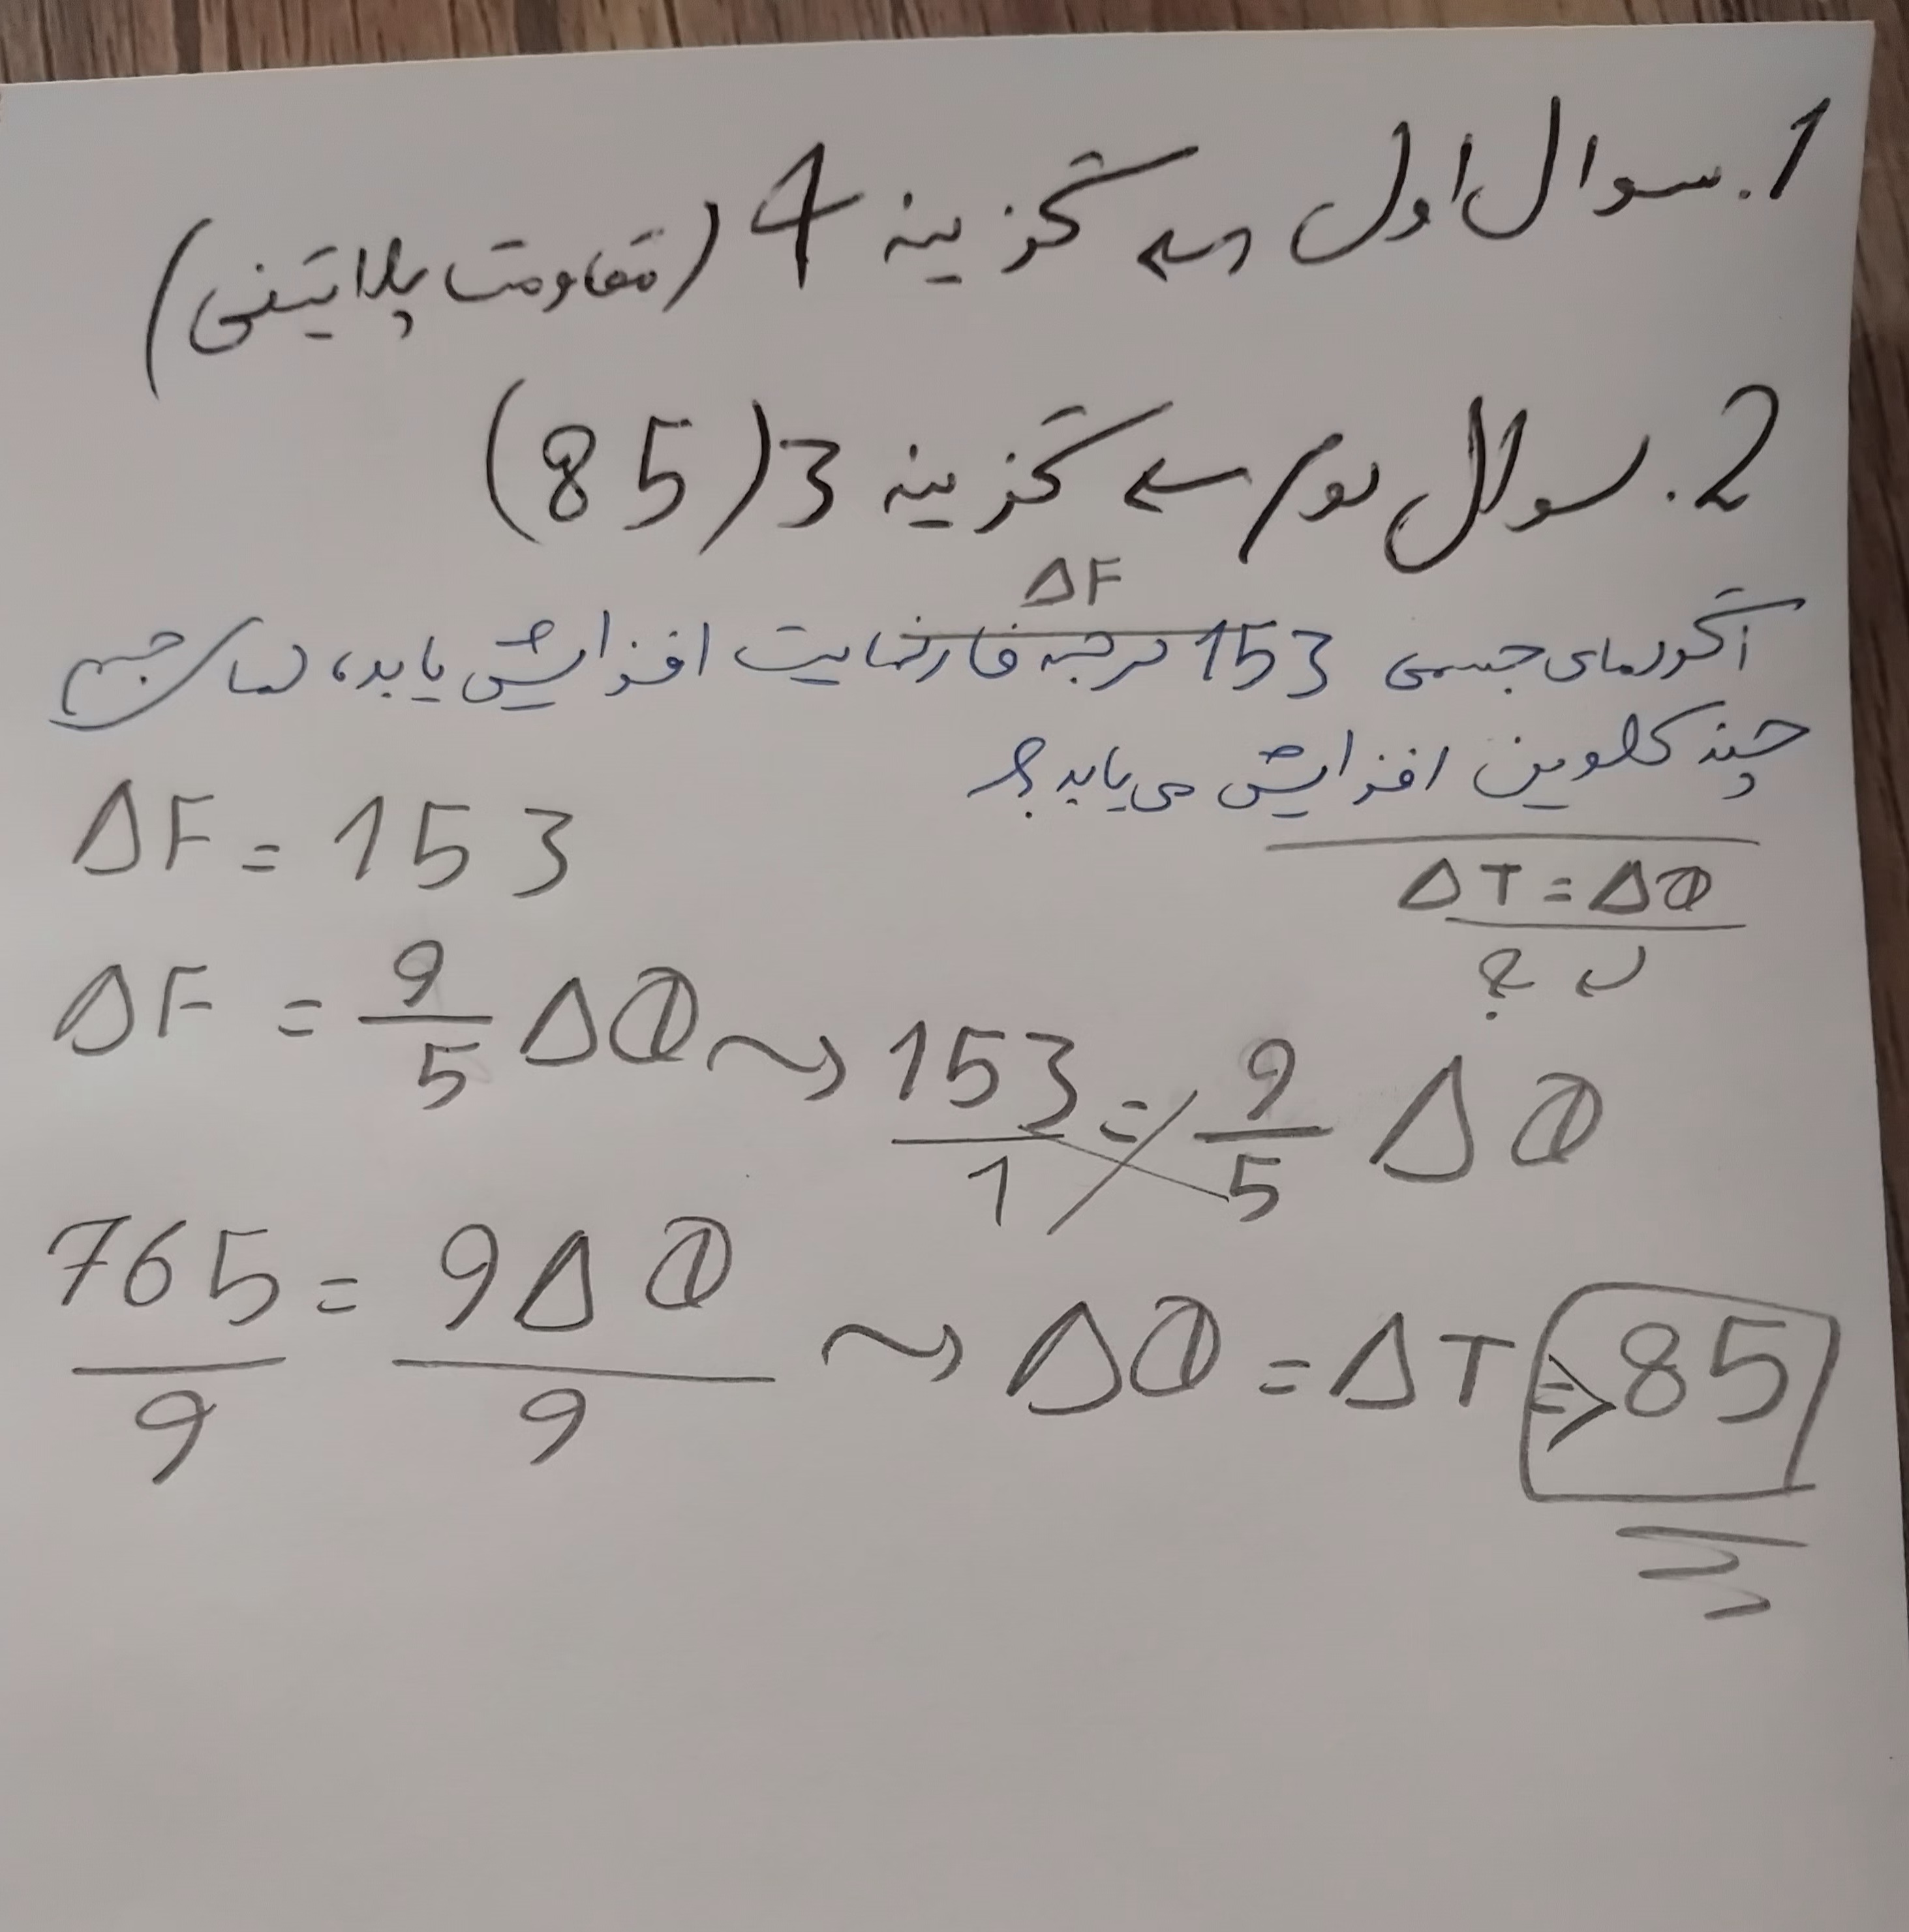 1. سوال اول ← گزینه 4 (مقاومت پلاتینی)
2. سوال دوم ← گزینه 3 (85)
ΔF
اگر دمای جسمی 153 درجه فارنهایت افزایش یابد، دمای جسم
چند کلوین افزایش می‌یابد؟
ΔT = Δθ
↵ ؟
ΔF = 153
ΔF = 9/5 Δθ ⇝ 153/1 = 9/5 Δθ
765/9 = 9Δθ/9 ⇝ Δθ = ΔT ⇒ 85